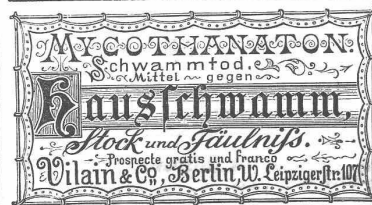 MYCOTHANATON
Schwammtod.
Mittel gegen
Hausschwamm,
Stock und Fäulniſs.
Prospecte gratis und franco
Vilain & Co, Berlin W. Leipzigerstr. 107